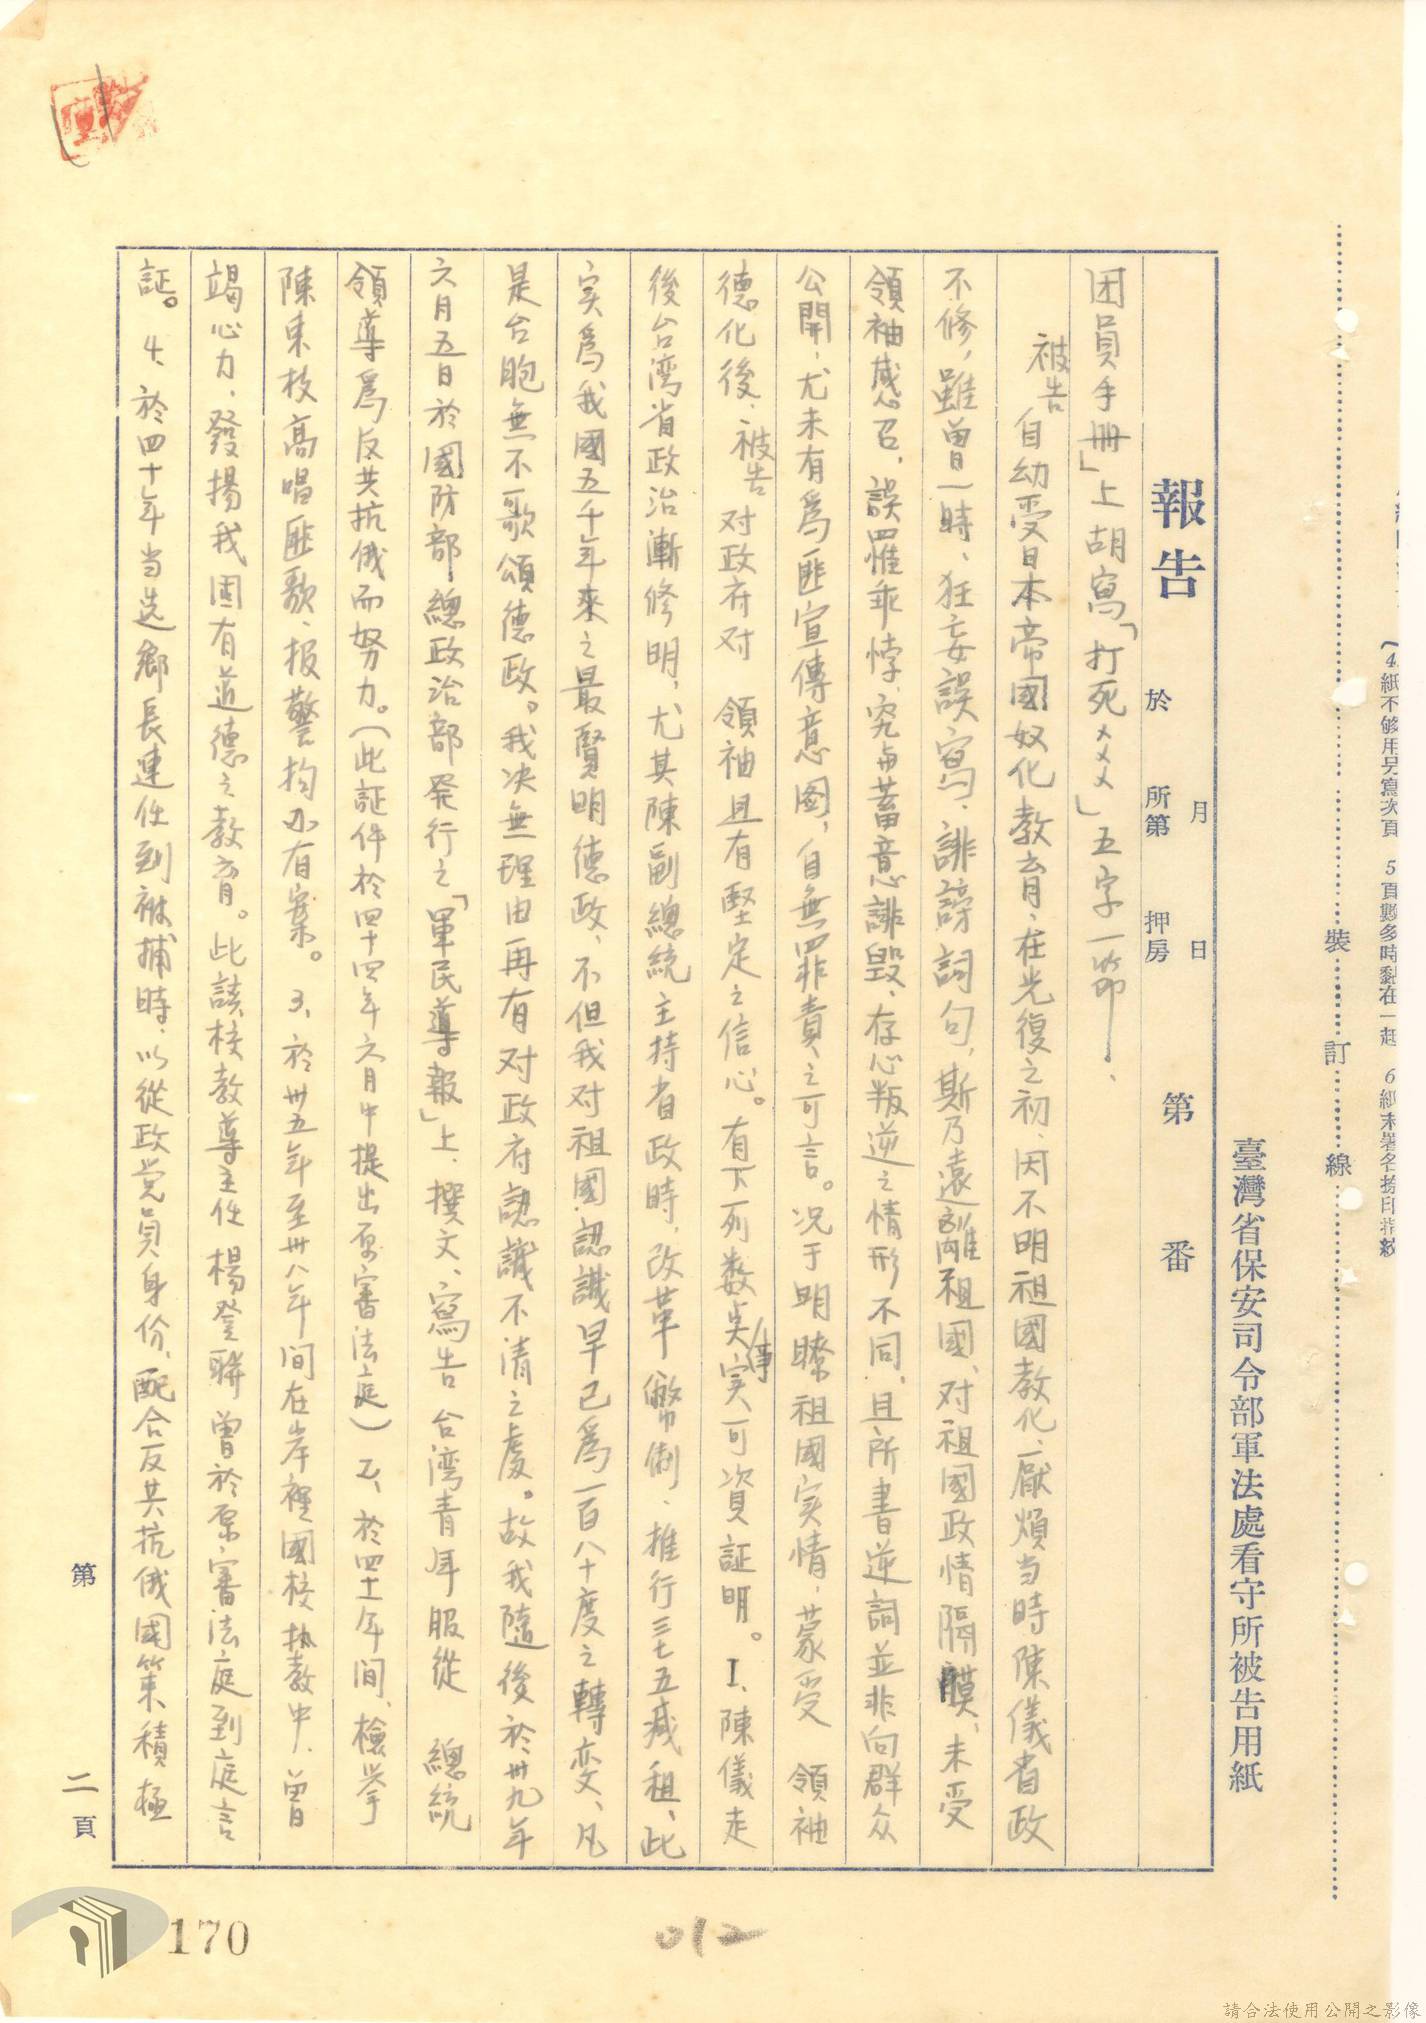 4.紙不够用另寫次頁 5頁數多時黏在一起 6紙末署名捺印指紋
裝 訂 線
臺灣省保安司令部軍法處看守所被告用紙
月 日
報告 於 所第 押房 第 番
団員手冊」上胡寫「打死××××」五字一節。
被告自幼受日本帝國奴化教育、在光復之初、因不明祖國教化、厭煩当時陳儀省政
不修，雖曾一時、狂妄誤寫、誹謗詞句，斯乃遠離祖國、对祖國政情隔膜、未受
領袖感召，誤罹乖悖、究与蓄意誹毀、存心叛逆之情形不同，且所書逆詞並非向群众
公開、尤未有爲匪宣傳意图，自無罪責之可言。况于明瞭祖國实情，蒙受 領袖
德化後、被告对政府对 領袖且有堅定之信心。有下列数点事实可資証明。1、陳儀走
後台湾省政治漸修明，尤其陳副總統主持省政時，改革幣制、推行三七五减租、此
实爲我國五千年來之最賢明德政、不但我对祖國認識早已爲一百八十度之轉变、凡
是台胞無不歌頌德政。我决無理由再有对政府認識不清之處。故我隨後於卅九年
六月五日於國防部總政治部発行之「軍民導報」上、撰文、寫告台湾青年服從 總統
領導爲反共抗俄而努力。（此証件於四十四年六月中提出原審法庭）2、於四十年间、檢举
陳東枝高唱匪歌、报警均有案。 3、於卅五年至卅八年间在岸裡國校执教中、曾
竭心力、發揚我固有道德之教育。此該校教導主任楊登聯曾於原審法庭到庭言
証。 4、於四十年当选鄉長連任到被捕時、以從政党員身份、配合反共抗俄國策積極
第 二 頁
170
012
請合法使用公開之影像